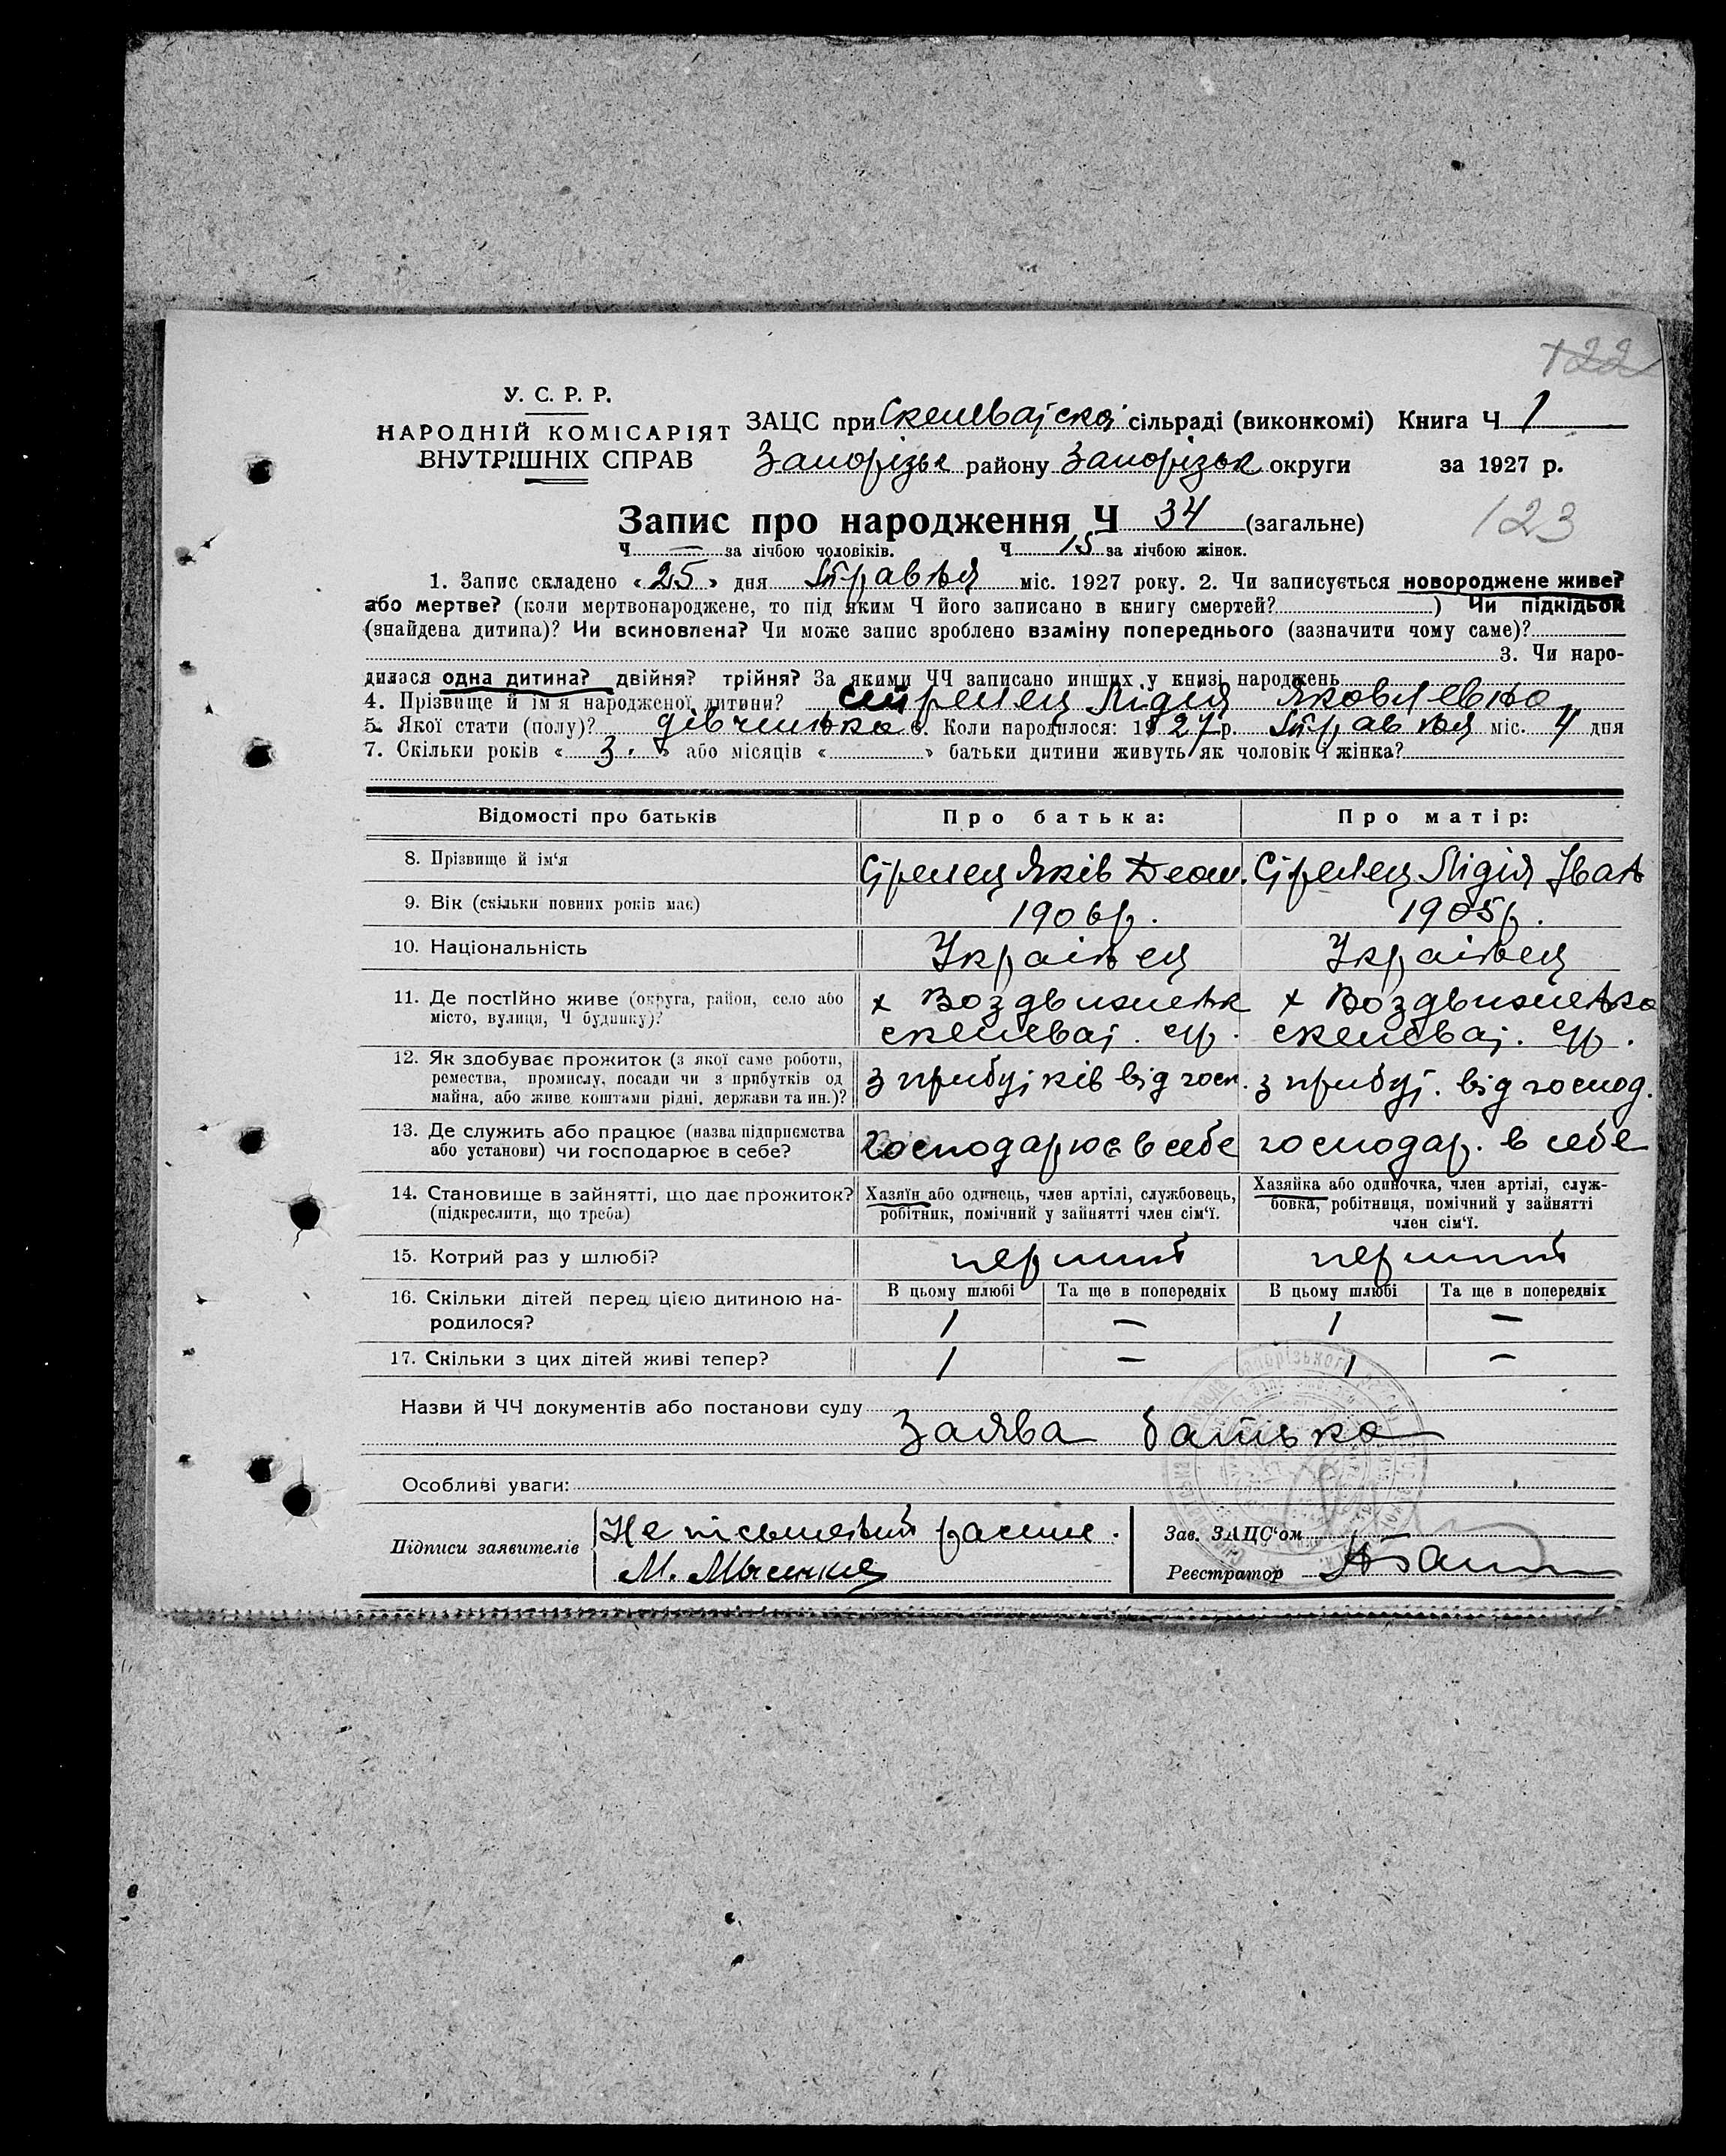 122
У. С. Р. Р.
НАРОДНІЙ КОМІСАРІЯТ
ВНУТРІШНІХ СПРАВ
ЗАЦС при Скелеватской сільраді (виконкомі) Книга Ч 1
Запорізьк району Запорізьк округи за 1927 р.
Запис про народження Ч 34 (загальне)
123
Ч — за лічбою чоловіків. Ч 15 за лічбою жінок.
1. Запис складено «25» дня Травня міс. 1927 року. 2. Чи записується новороджене живе?
або мертве? (коли мертвонароджене, то під яким Ч його записано в книгу смертей? ) Чи підкідьок
(знайдена дитина)? Чи всиновлена? Чи може запис зроблено взаміну попереднього (зазначити чому саме)?
3. Чи наро-
дилася одна дитина? двійня? трійня? За якими ЧЧ записано инших у книзі народжень
4. Прізвище й ім'я народженої дитини? Стрелец Лідія Яковлевна
5. Якої стати (полу)? дівчинка 6. Коли народилося: 1927 р. Травня міс. 4 дня
7. Скільки років «3.» або місяців « » батьки дитини живуть як чоловік і жінка?
Відомості про батьків
Про батька:
Про матір:
8. Прізвище й ім'я
Стрелец Яків Деом.
Стрелец Лідія Іван
9. Вік (скільки повних років має)
1906р.
1905р.
10. Національність
Украінец
Украінец
11. Де постійно живе (округа, район, село або
місто, вулиця, Ч будинку)?
х Воздвиженк
скелеват. с/р.
х Воздвиженка
скелеват. с/р.
12. Як здобуває прожиток (з якої саме роботи,
ремества, промислу, посади чи з прибутків од
майна, або живе коштами рідні, держави та ин.)?
з прибутків від госп.
з прибут. від господ.
13. Де служить або працює (назва підприємства
або установи) чи господарює в себе?
Господарює в себе
господар. в себе
14. Становище в зайнятті, що дає прожиток?
(підкреслити, що треба)
Хазяїн або одинець, член артілі, службовець,
робітник, помічний у зайнятті член сім'ї.
Хазяйка або одиночка, член артілі, служ-
бовка, робітниця, помічний у зайнятті
член сім'ї.
15. Котрий раз у шлюбі?
перший
перший
16. Скільки дітей перед цією дитиною на-
родилося?
В цьому шлюбі Та ще в попередніх
В цьому шлюбі Та ще в попередніх
1 — 1 —
17. Скільки з цих дітей живі тепер?
1 — 1 —
Назви й ЧЧ документів або постанови суду
Заява батька
Особливі уваги:
Підписи заявителів
Не письменный
М.
Зав. ЗАЦС'ом
Реєстратор